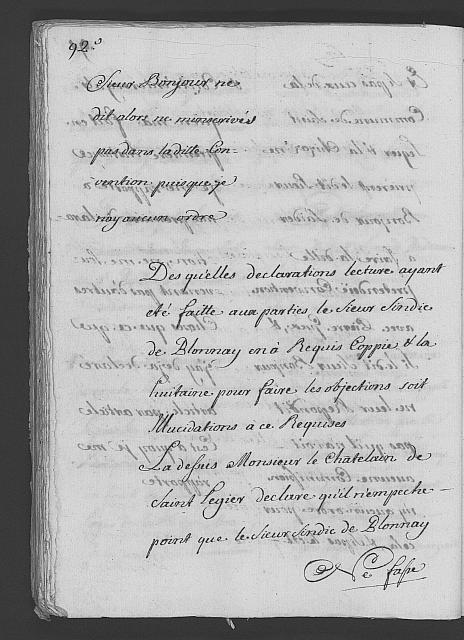 92.
Sieur Bonjour ne
dit alors ne m'inscrivés
pas dans la ditte Con-
vention puisque je
n'ay aucun ordre
Desquelles declarations lecture ayant
eté faitte aux parties le Sieur Sindic
de Blonnay en à Requis Coppie & la
huitaine pour faire les objections soit
Illucidations à ce Requises
La dessus Monsieur le Chatelain de
Saint Legier declare qu'il n'empeche
point que le Sieur Sindic de Blonnay
Ne fasse